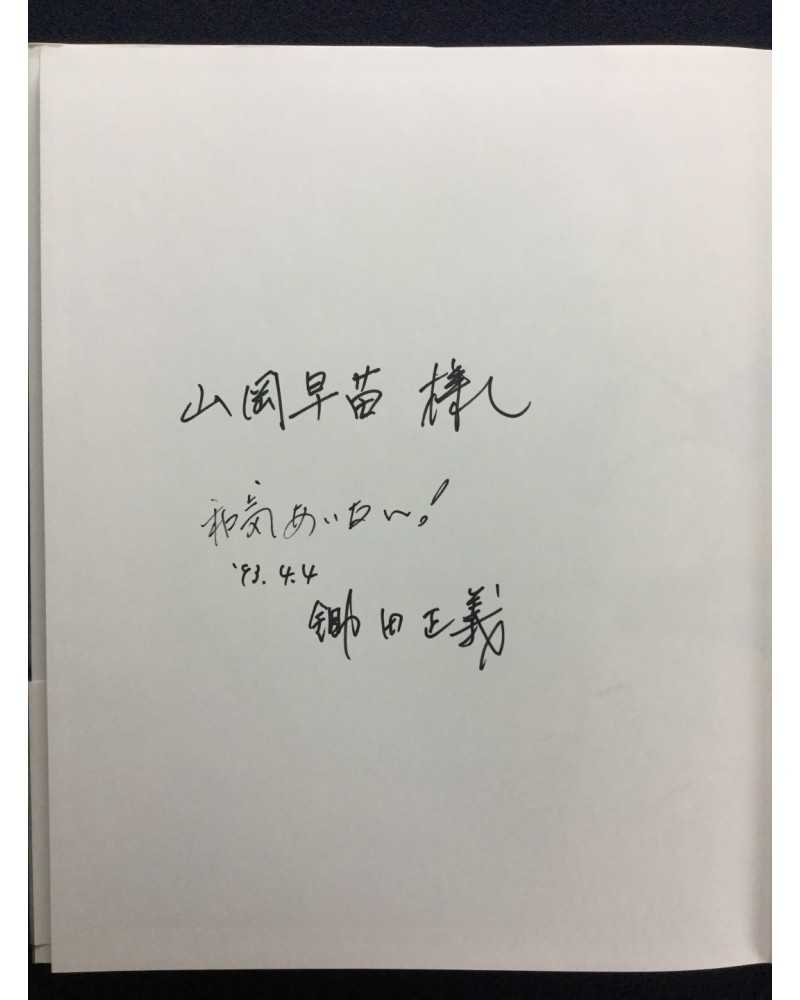 山岡早苗 様
和気あいあい!
'93. 4.4
鋤田正義